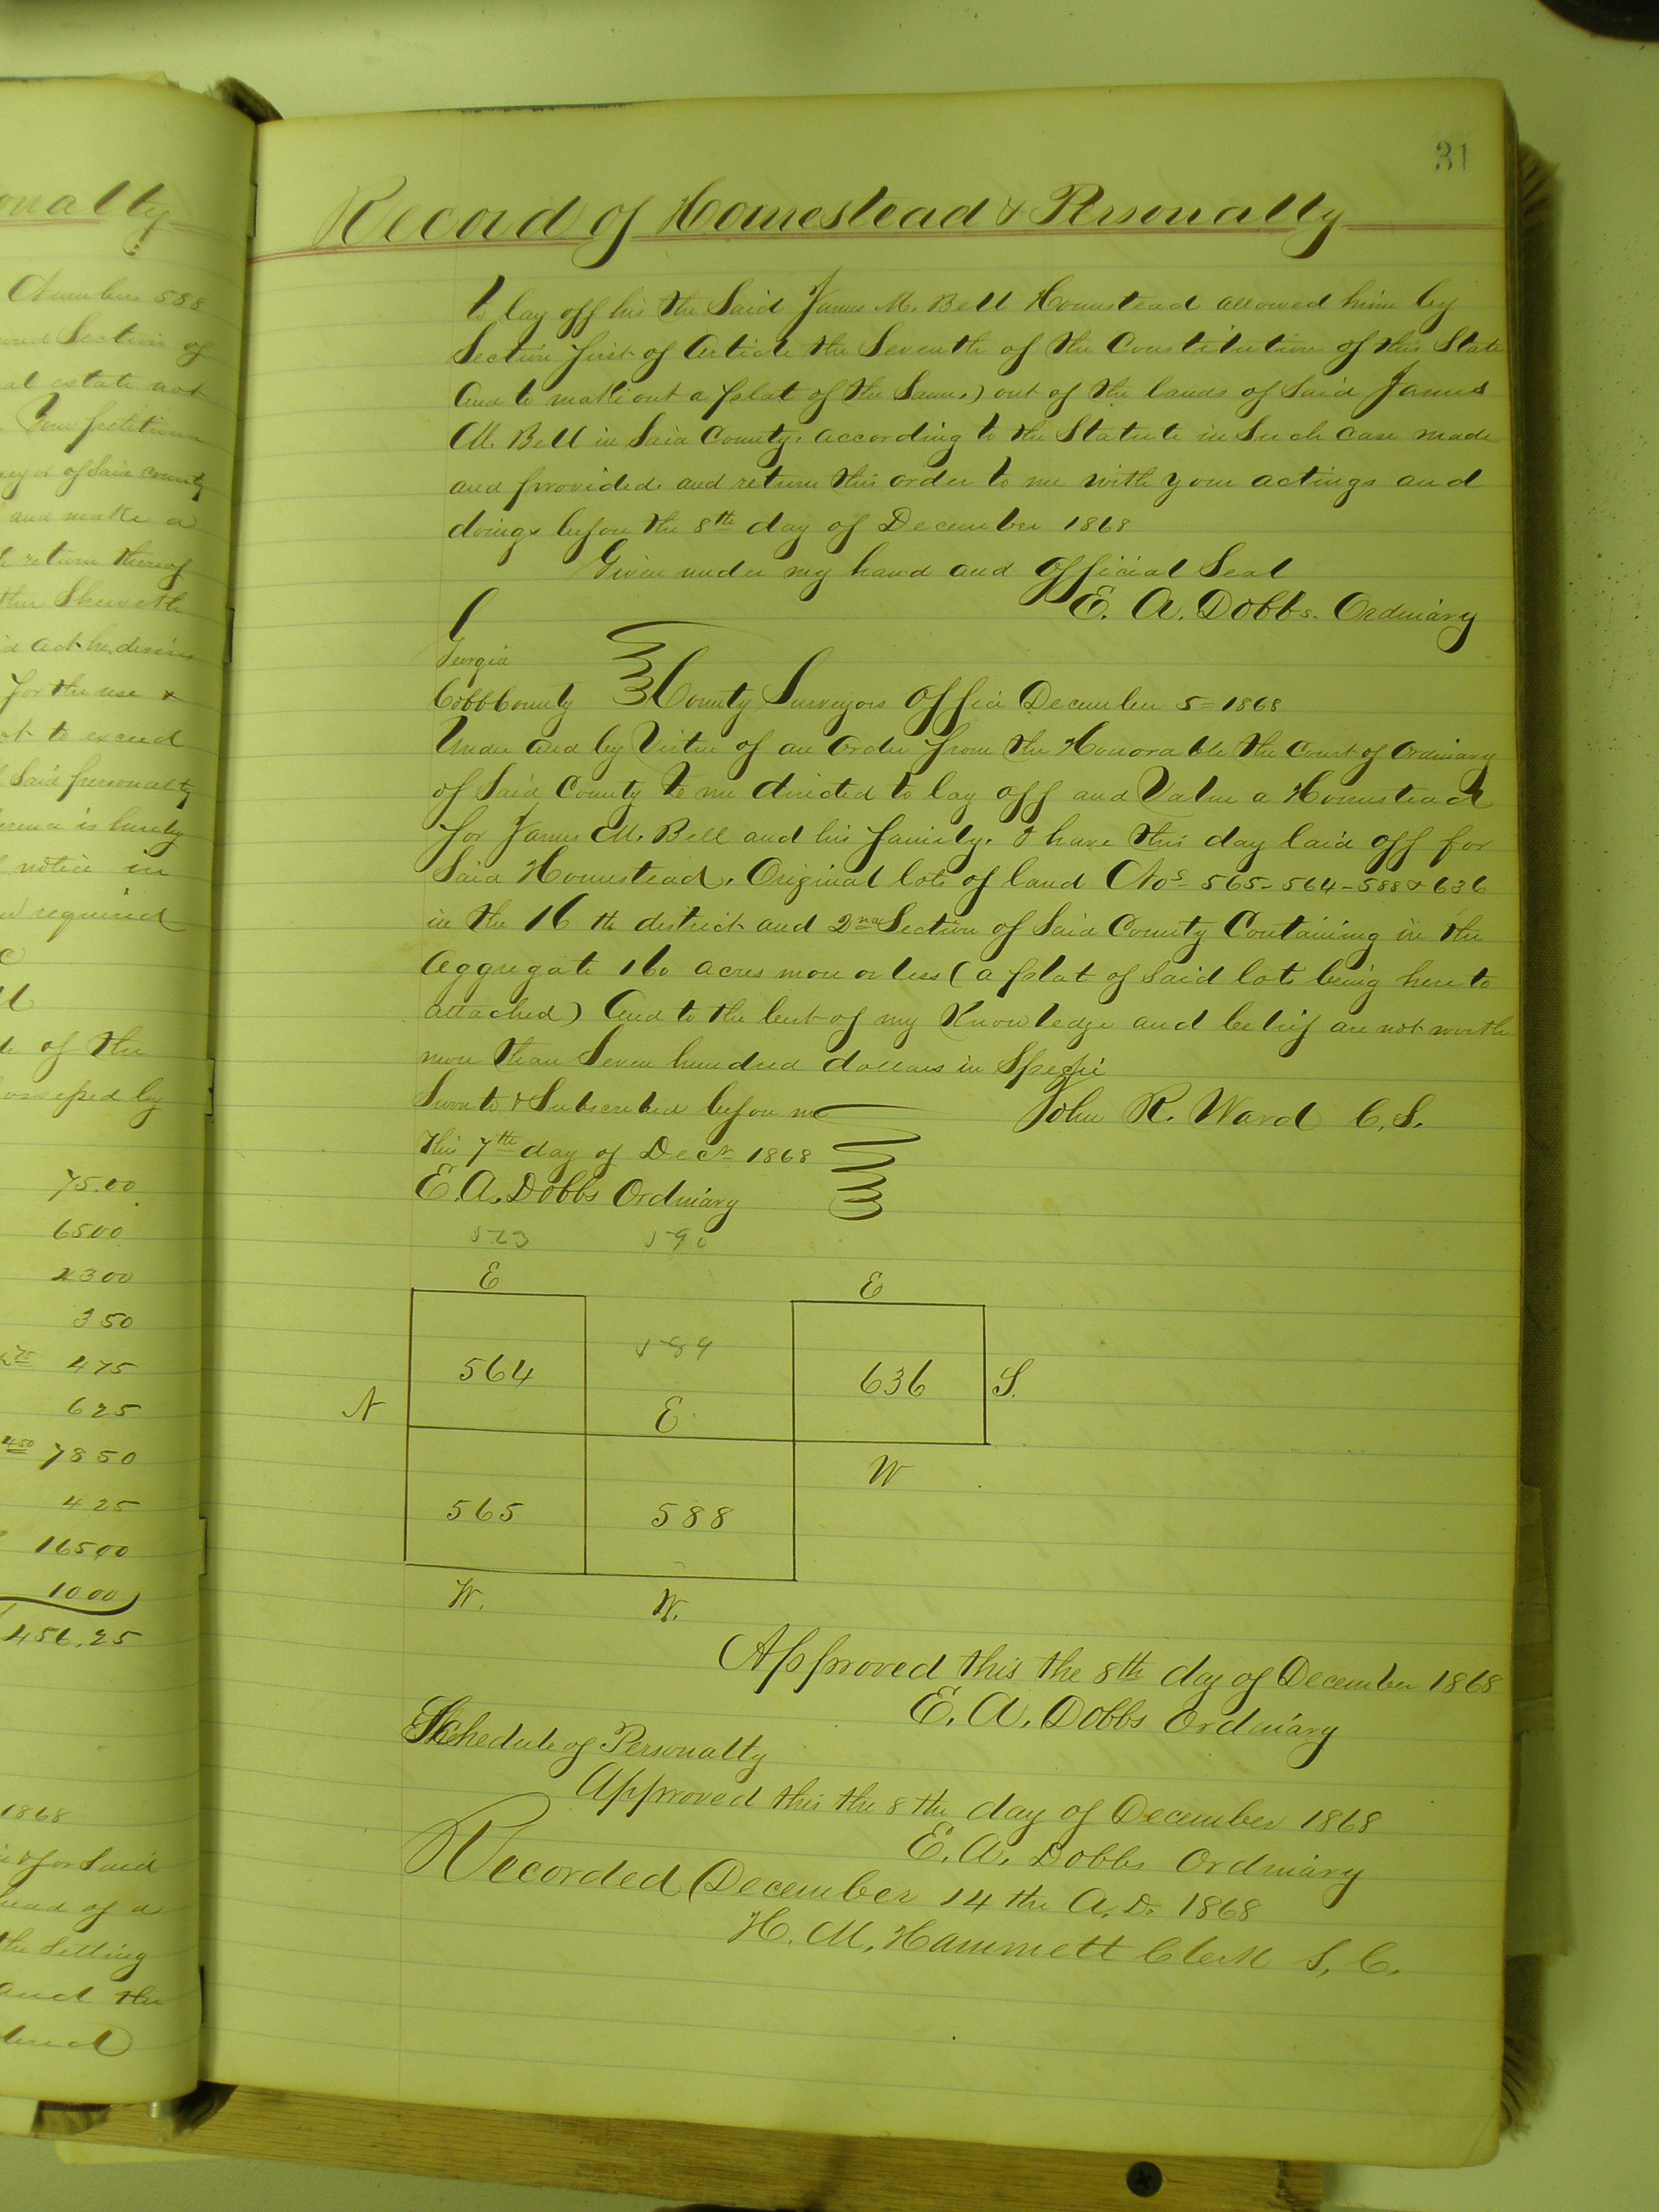 onalty
Number 588
Section of
al estate not
Your petitioner
of said County
and make a
return thereof
Sheweth
act he desires
for the use &
to exceed
Said personalty
is hereby
notice in
required
of the
by
75.00
6500
2300
350
475
625
7850
425
16500
1000
456.25
1868
for Said
head of a
the Setting
and the
31
Record of Homestead & Personalty
to lay off his the Said James M. Bell Homestead allowed him by
Section first of Article the Seventh of the Constitution of this State
And to make out a plat of the Same,) out of the lands of Said James
M. Bell in Said County, according to the Statute in Such case made
and provided. and return this order to me with your actings and
doings before the 8th day of December 1868
Given under my hand and Official Seal
E. A. Dobbs. Ordinary
Georgia
Cobb County County Surveyors Office December 5 = 1868
Under and by Virtue of an Order from the Honorable the Court of Ordinary
of Said County to me directed to lay off and Value a Homestead
for James M. Bell and his family. I have this day laid off for
Said Homestead, Original lots of land Nos- 565- 564 - 588 & 636
in the 16th district and 2nd Section of Said County Containing in the
Aggregate 160 acres more or less (a plat of Said lots being here to
attached) And to the best of my Knowledge and belief are not worth
more than Seven hundred dollars in Specie
Sworn to & Subscribed before me John R. Ward C. S.
this 7th day of Decr 1868
E. A. Dobbs Ordinary
523 590
E E
564 589 636 S.
N E
W
565 588
W. W.
Approved this the 8th day of December 1868
E. A. Dobbs Ordinary
Schedule of Personalty
Approved this the 8th day of December 1868
E. A. Dobbs Ordinary
Recorded December 14th A. D. 1868
H. M. Hammett Clerk S. C.